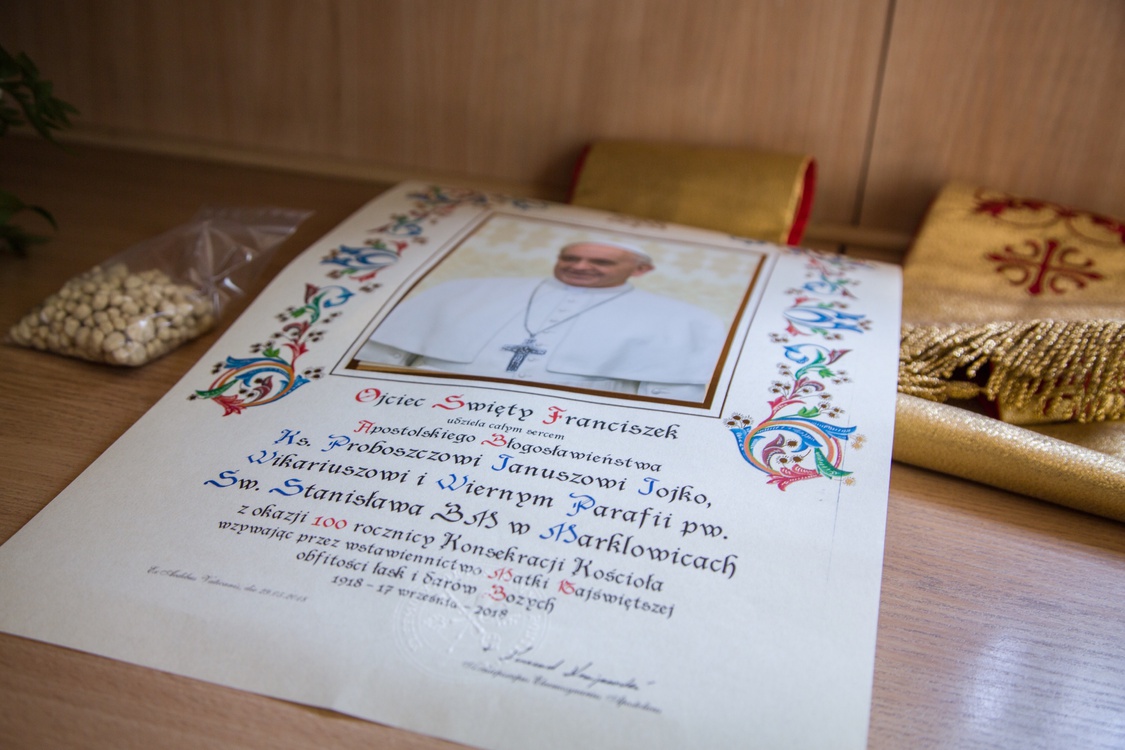 Ojciec Święty Franciszek
udziela całym sercem
Apostolskiego Błogosławieństwa
Ks. Proboszczowi Januszowi Jojko,
Wikariuszowi i Wiernym Parafii pw.
Św. Stanisława BM w Marklowicach
z okazji 100 rocznicy Konsekracji Kościoła
wzywając przez wstawiennictwo Matki Najświętszej
obfitości łask i darów Bożych
1918 – 17 września – 2018
Ex Aedibus Vaticanis, die